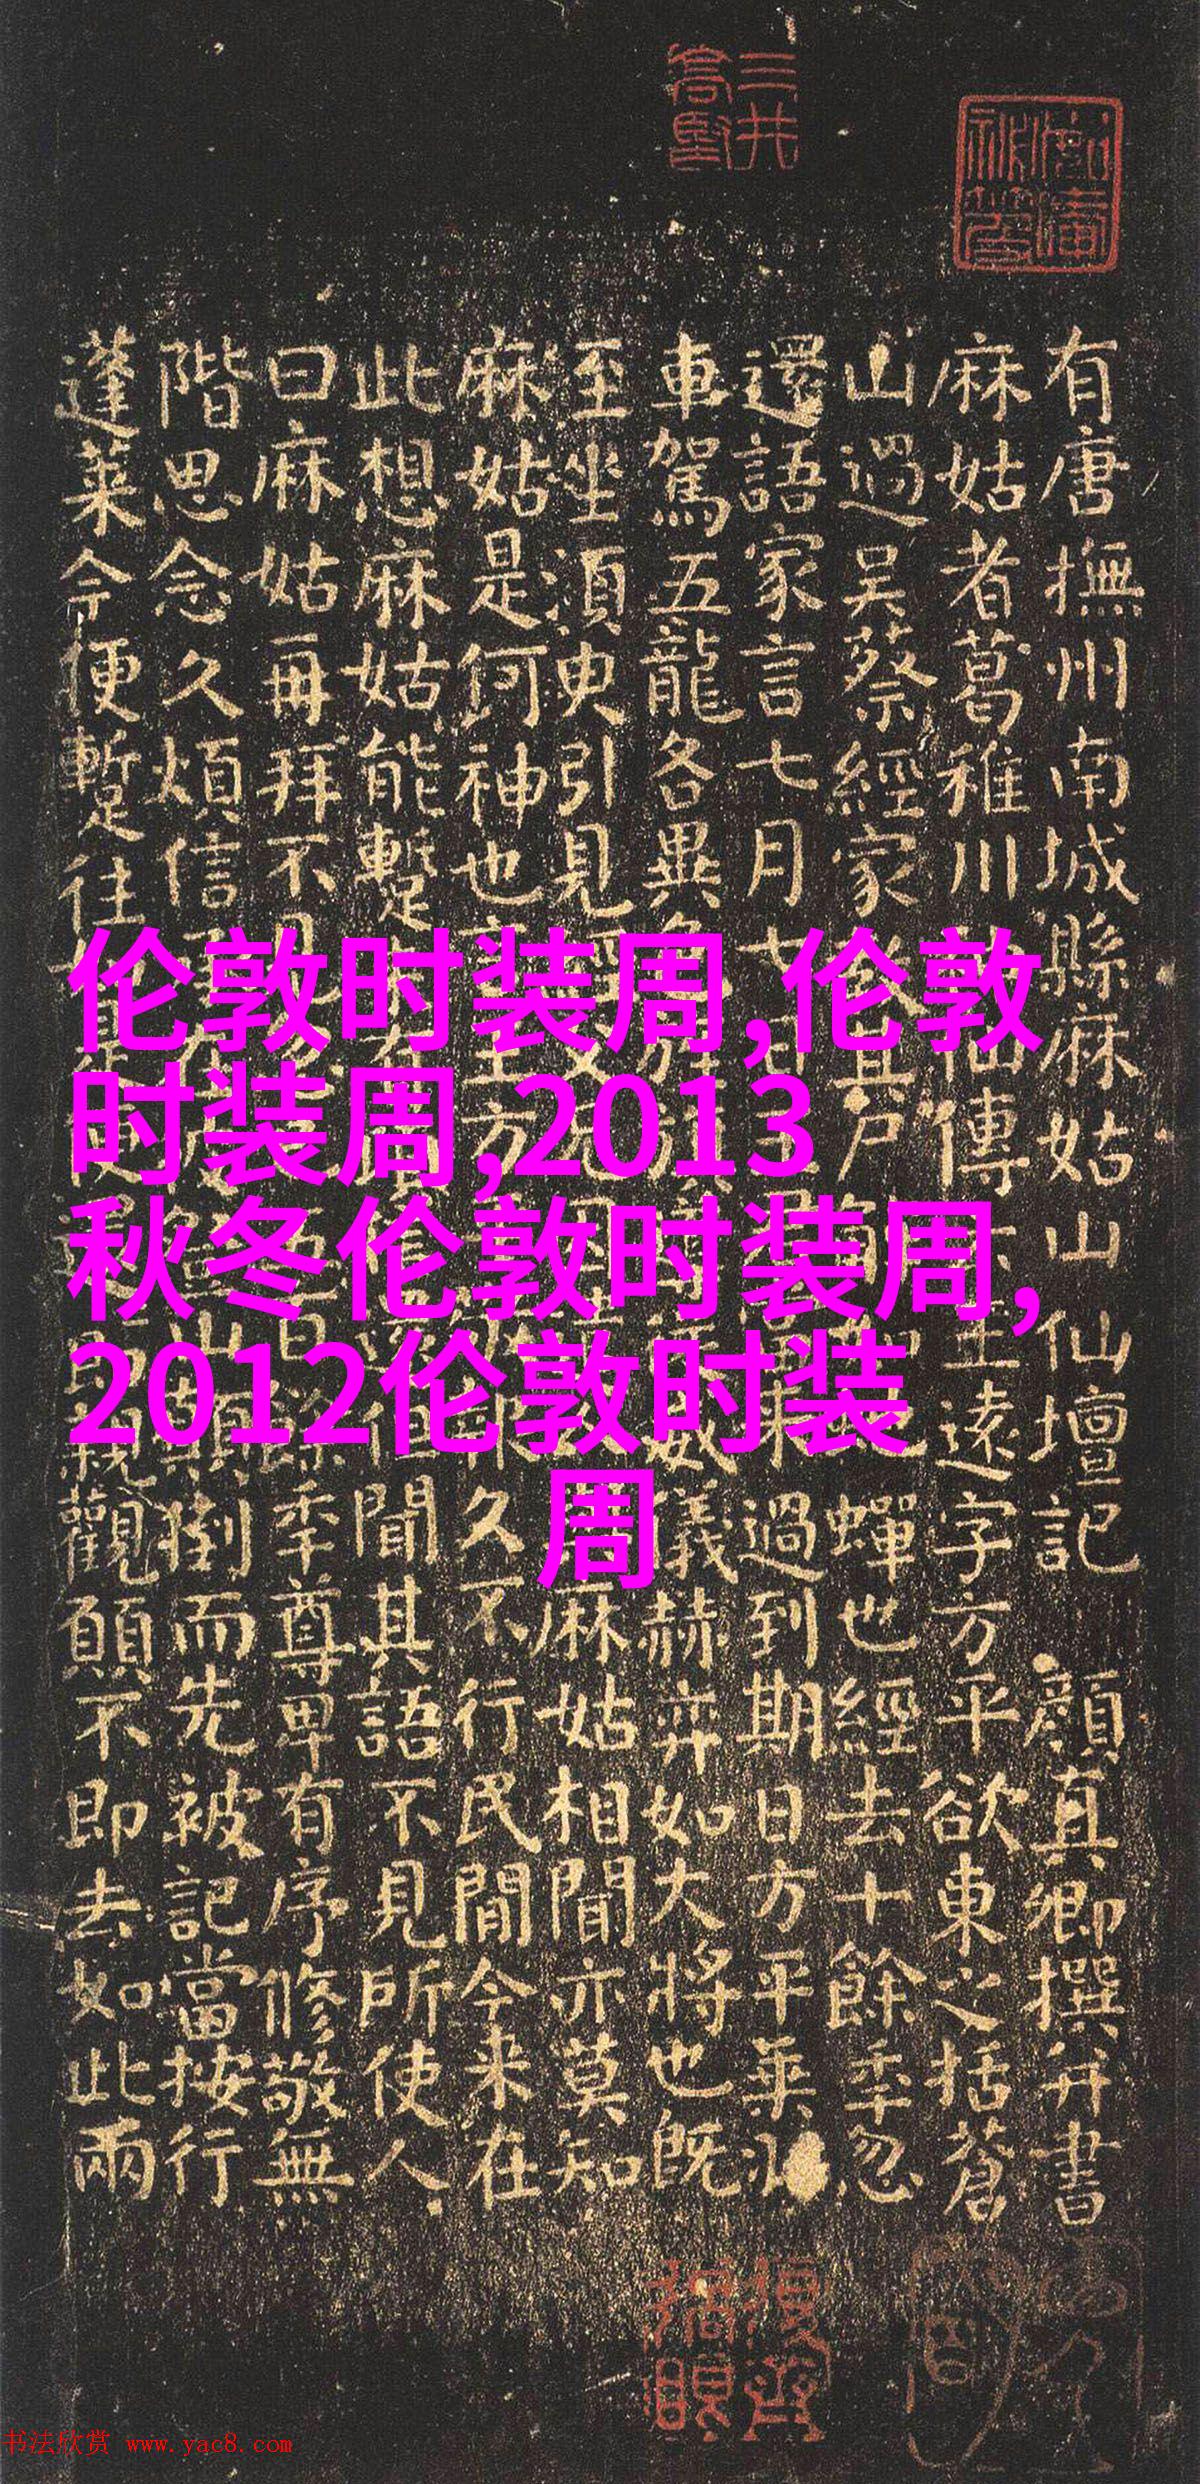 三井
高堅
有唐撫州南城縣麻姑山仙壇記 顏真卿撰并書
麻姑者葛稚川仙傳王遠字方平欲東之括蒼
山過吳蔡經家教其尸蟬也經去十餘年忽
還語家言七月七日過到期日方平乘
車駕五龍各異色威儀赫弈如大將也既
至坐須臾引見經父麻姑相聞亦莫知
麻姑是何神也言王方報久不行民間今來在
此想麻姑能暫來有還但聞其語不見所使人
曰麻姑再拜不見忽百餘年尊卑有序修敬無
階思念久煩信承在登山顛倒而先被記當按行
蓬萊今便暫往如是便還即親觀願不即去如此兩
伦敦时装周,伦敦
时装周,2013
秋冬伦敦时装周,
2012伦敦时装
周
书法欣赏 www.yac8.com